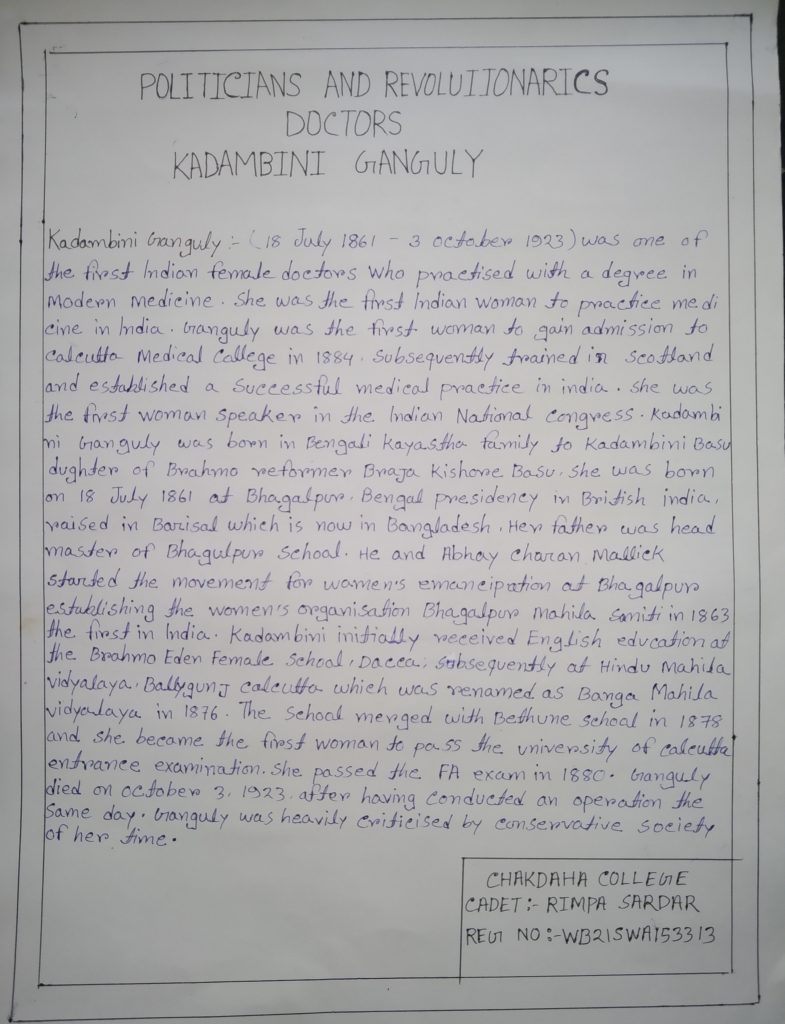 POLITICIANS AND REVOLUIIONARICS
DOCTORS
KADAMBINI GANGULY
Kadambini Ganguly :- (18 July 1861 - 3 october 1923) was one of
the first Indian female doctors who practised with a degree in
Modern medicine. She was the first Indian woman to practice medi
cine in India. Ganguly was the first woman to gain admission to
Calcutta Medical College in 1884. Subsequently trained in Scotland
and established a Successful medical practice in india. she was
the first woman speaker in the Indian National Congress. Kadambi
ni Ganguly was born in Bengali Kayastha family to Kadambini Basu
dughter of Brahmo reformer Braja Kishore Basu. She was born
on 18 July 1861 at Bhagalpur. Bengal presidency in British india,
raised in Barisal which is now in Bangladesh. Her father was head
master of Bhagulpur School. He and Abhay Charan Mallick
started the movement for women's emancipation at Bhagalpur
establishing the women's organisation Bhagalpur Mahila Samiti in 1863
the first in India. Kadambini initially received English education at
the Brahmo Eden Female School, Dacca; Subsequently at Hindu Mahila
vidyalaya, Ballygunj calcutta which was renamed as Banga Mahila
vidyalaya in 1876. The School merged with Bethune school in 1878
and she became the first woman to pass the university of calcutta
entrance examination. She passed the FA exam in 1880. Ganguly
died on october 3, 1923, after having conducted an operation the
same day. Ganguly was heavily criticised by conservative society
of her time.
CHAKDAHA COLLEGE
CADET:- RIMPA SARDAR
REGI NO:-WB21SWA153313